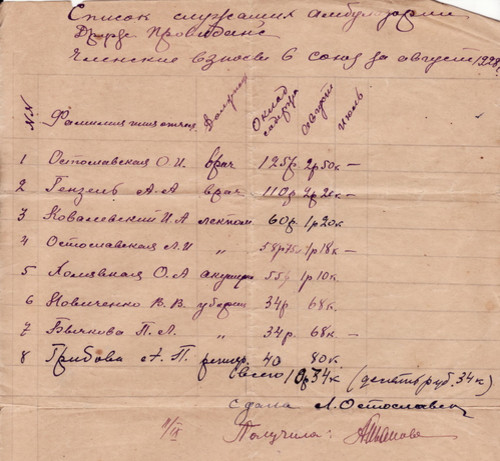 Список служащих амбулатории
Друзе Провиданс
Членские взносы в союз за август 1928
NN Фамилия имя отч. Должнос Оклад август июль
1 Остославская О.И. врач 125р 2р50к –
2 Гензель А.А врач 110р 2р20к –
3 Ковалевский И А лекпом 60р 1р20к
4 Остославская Л.И „ 58р75к 1р18к –
5 О.А акушерк 55р 1р10к.
6 Новиченко В.В. уборщ 34р 68к.
7 Бычкова П.Л. „ 34р. 68к –
8 Грибова А.П. регистр. 40 80к.
Всего 10р34к (десять руб. 34к)
сдала Л.Остославск
11/IX Получила: